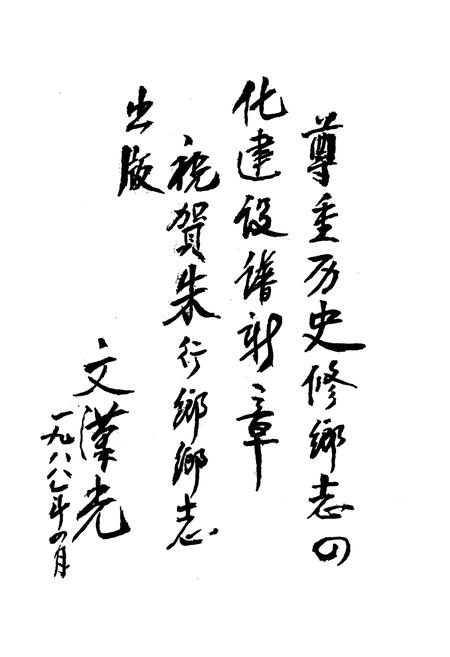 尊重历史修乡志四
化建设谱新章
祝贺朱行鄉鄉志
出版
文漢光
一九八八年四月